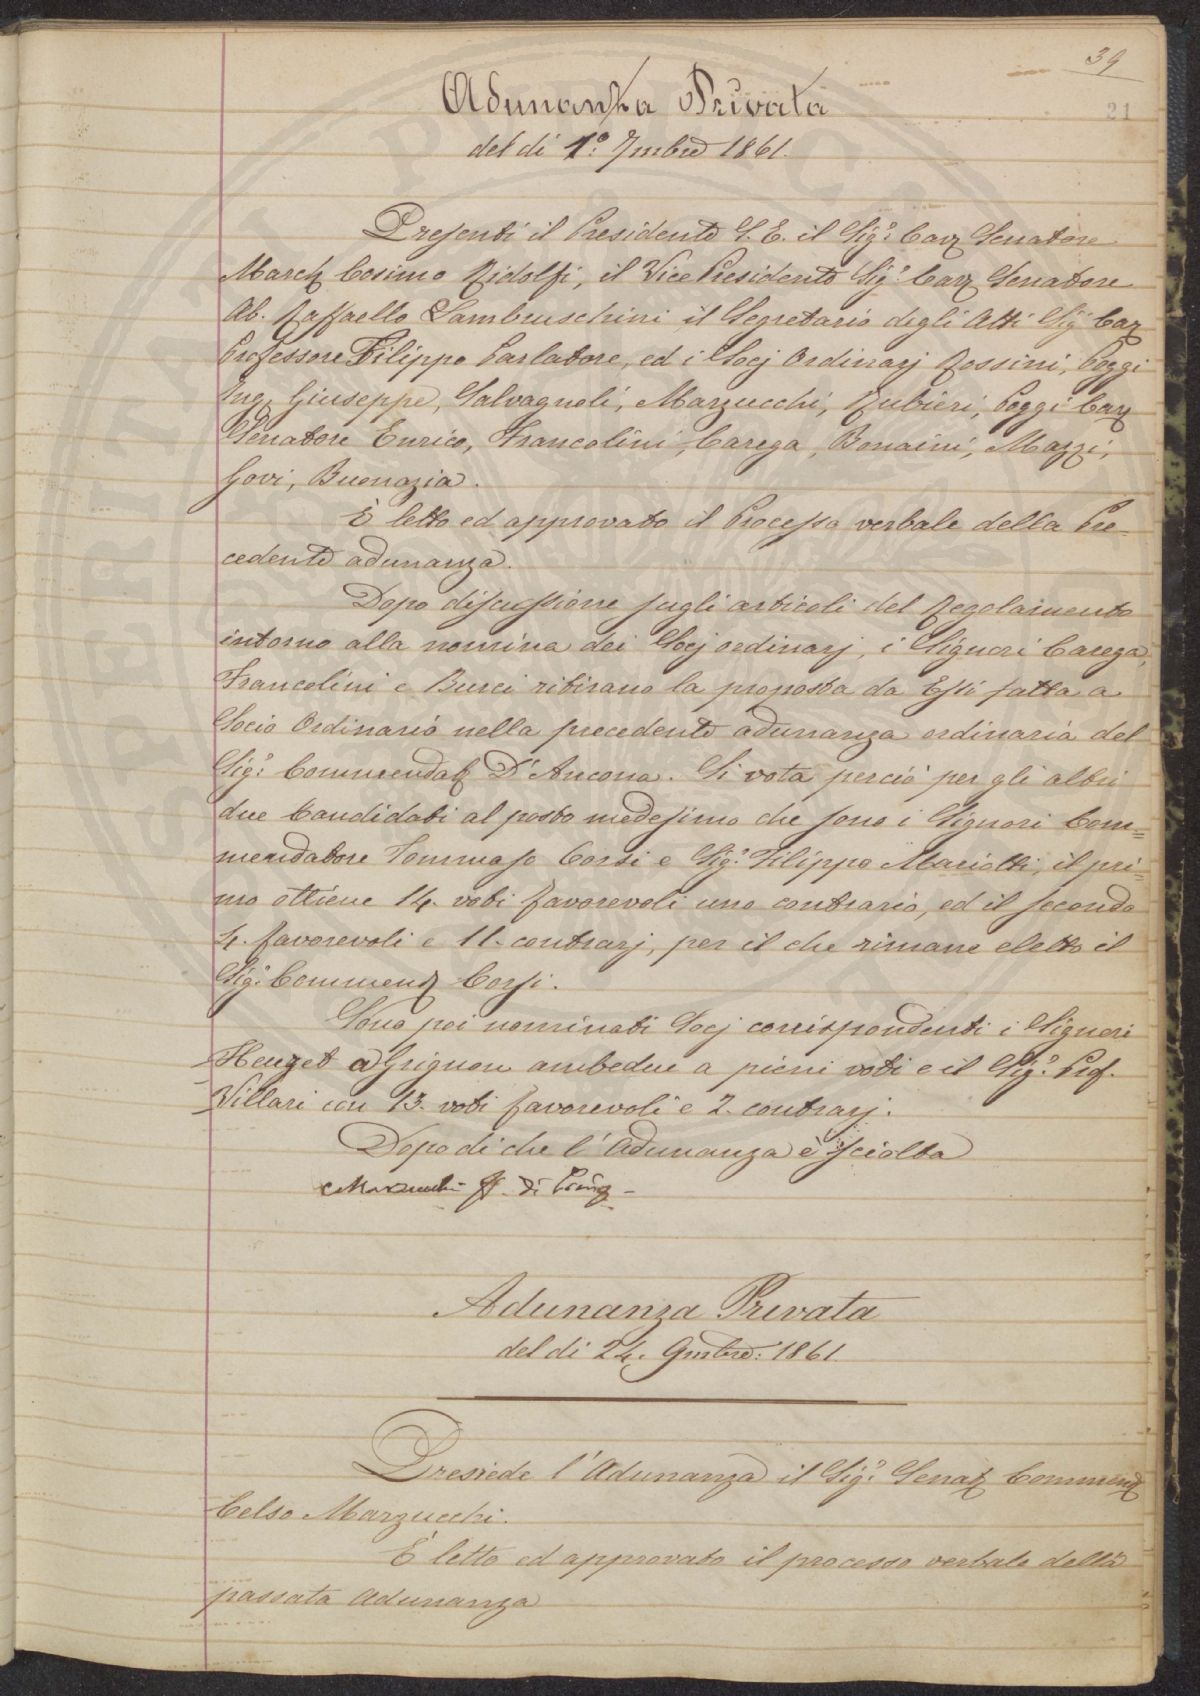 39
21
Adunanza Privata
del di 1º. 7mbre 1861.
Presenti il Presidente S. E. il Sigr. Cav Senatore
March Cosimo Ridolfi, il Vice Presidente Sigr. Cav Senatore
Ab. Raffaello Lambruschini il Segretario degli Atti Sigr Cav
Professore Filippo Parlatore, ed i Socj Ordinarj Rossini, Poggi
Ing Giuseppe, Salvagnoli, Marzucchi, Rubieri, Poggi Cav
Senatore Enrico, Francolini, Carega, Bonaini, Mazzi,
Govi, Buonazia.
È letto ed approvato il Processo verbale della Pre-
cedente adunanza.
Dopo discussione sugli articoli del Regolamento
intorno alla nomina dei Socj ordinarj, i Signori Carega,
Francolini e Burci ritirano la proposta da Essi fatta a
Socio Ordinario nella precedente adunanza ordinaria del
Sigr. Commendat D'Ancona. Si vota perciò per gli altri
due Candidati al posto medesimo che sono i Signori Com=
mendatore Tommaso Corsi e Sigr. Filippo Mariotti, il pri=
mo ottiene 14. voti favorevoli uno contrario, ed il secondo
4. favorevoli e 11. contrarj, per il che rimane eletto il
Sigr. Commend Corsi.
Sono poi nominati Socj corrispondenti i Signori
Heuzet a Grignon ambedue a pieni voti e il Sigr. Prof.
Villari con 13. voti favorevoli e 2. contrarj.
Dopo di che l'Adunanza è sciolta
CMarzucchi
Adunanza Privata
del di 24. 9mbre: 1861.
Presiede l'Adunanza il Sigr. Senat Commend
Celso Marzucchi.
È letto ed approvato il processo verbale della
passata adunanza